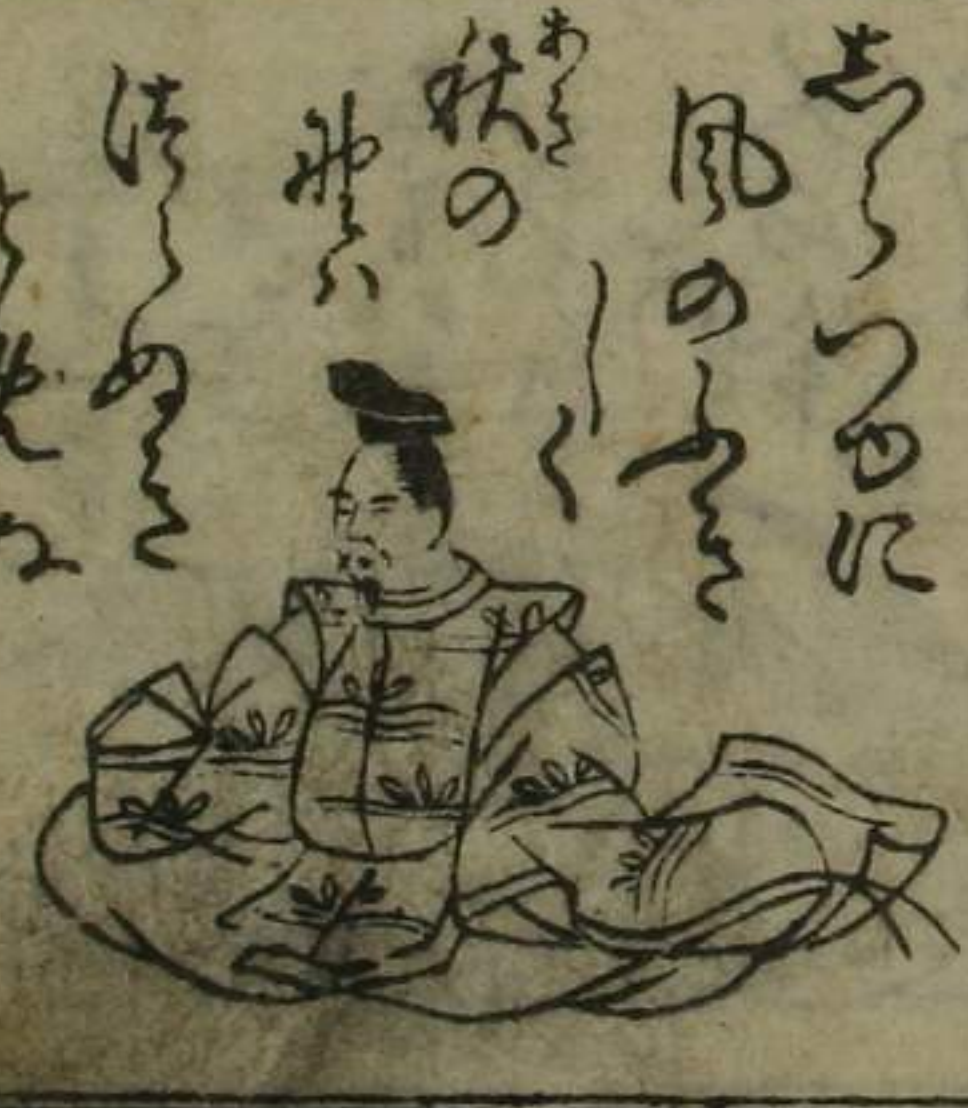 しらつゆに
風のふき
しく
あき
秋の
野ハ
つらぬき